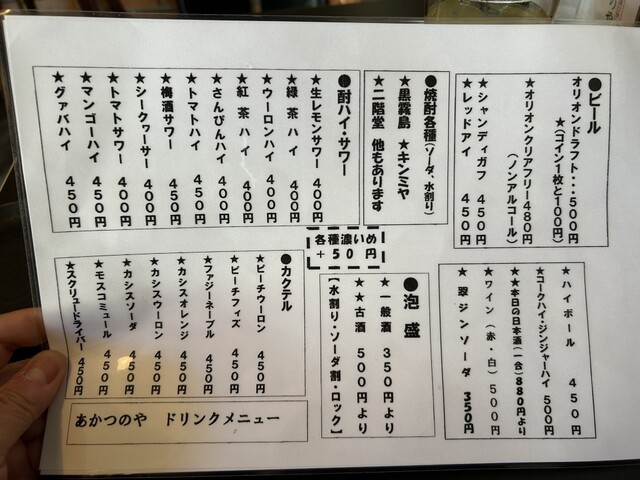 ●ビール
オリオンドラフト・・・500円
★(コイン1枚と100円)
★オリオンクリアフリー480円
(ノンアルコール)
★シャンディガフ 450円
★レッドアイ 450円
●焼酎各種(ソーダ、水割り)
★黒霧島 ★キンミヤ
★二階堂 他もあります
●酎ハイ・サワー
★生レモンサワー 400円
★緑茶ハイ 400円
★ウーロンハイ 400円
★紅茶ハイ 400円
★さんぴんハイ 400円
★トマトハイ 450円
★梅酒サワー 450円
★シークヮーサー 400円
★トマトサワー 400円
★マンゴーハイ 450円
★グァバハイ 450円
各種濃いめ
+50円
★ハイボール 450円
★コークハイ・ジンジャーハイ 500円
★★本日の日本酒(一合)880円より
★ワイン(赤・白)500円
★翠ジンソーダ 350円
●泡盛
★一般酒 350円より
★★古酒 500円より
【水割り・ソーダ割・ロック】
●カクテル
★ピーチウーロン 450円
★ピーチフィズ 450円
★ファジーネーブル 450円
★カシスオレンジ 450円
★カシスウーロン 450円
★カシスソーダ 450円
★モスコミュール 450円
★スクリュードライバー 450円
あかつのや ドリンクメニュー